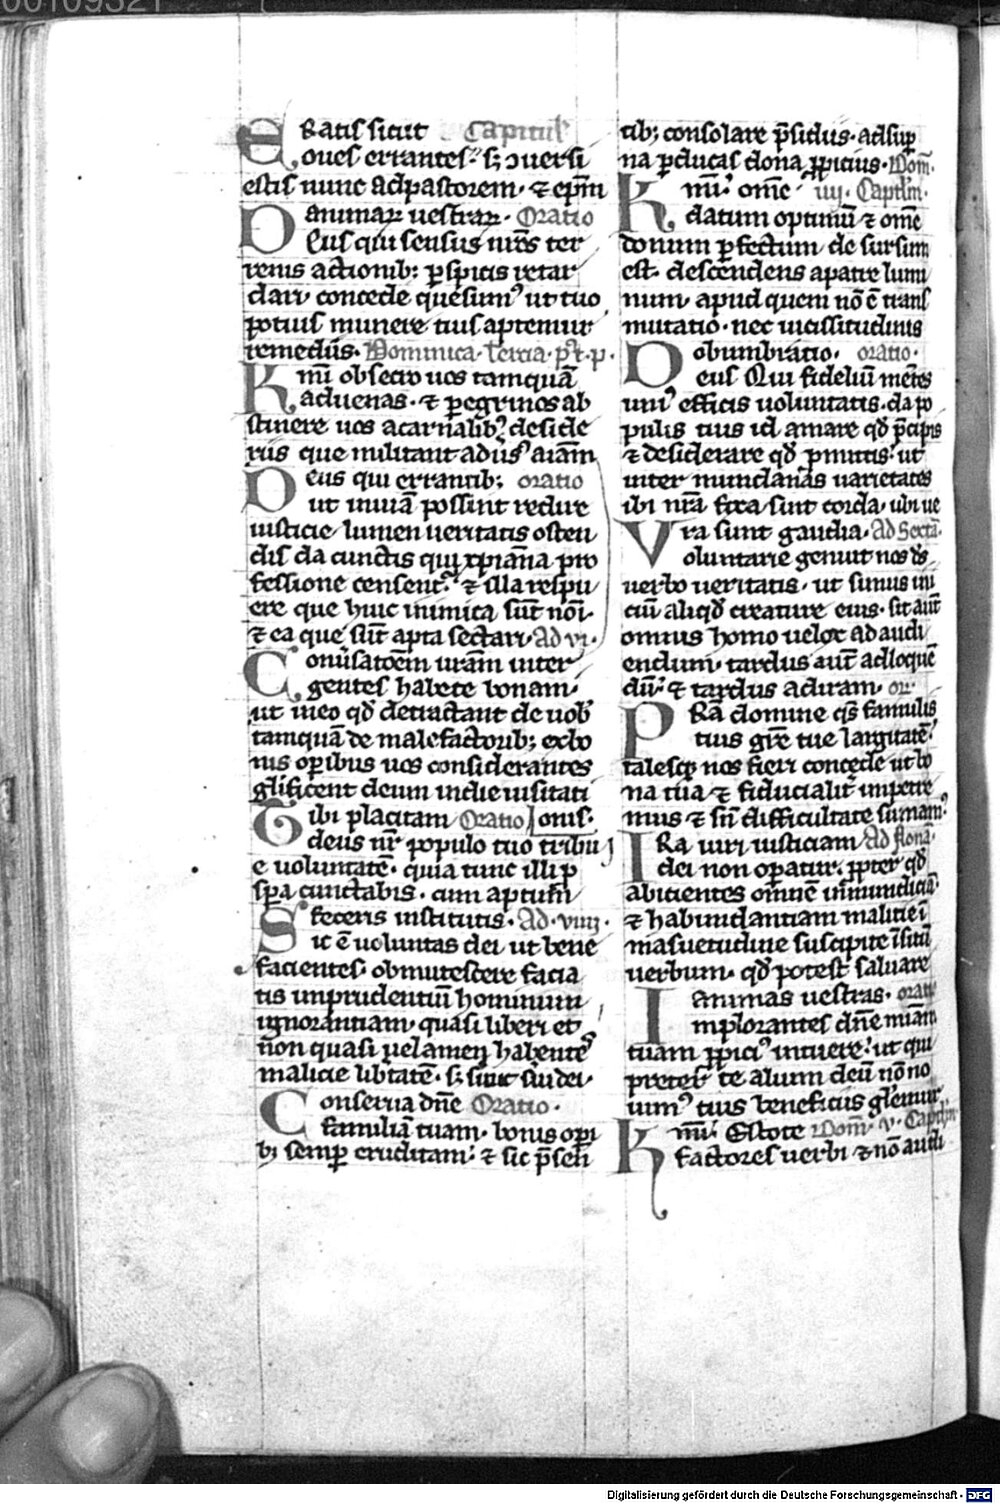 00109321
Eratis sicut Capitul̄
oues errantes. sꝫ ɔuersi
estis nunc ad pastorem. ⁊ ep̄m
animaꝝ uestraꝝ. Oratio
Deus qui sensus nr̄os ter
renis actionibꝫ ꝑspicis retar
dari. concede quesumꝰ ut tuo
potius munere tuis aptemur
remediis. Dominica. tercia. pꝰt. p.
Kmī obsecro uos tamquā
aduenas. ⁊ ꝑegrinos ab
stinere uos a carnalibꝫ deside
riis que militant aduīsꝰ aīam
Deus qui errantibꝫ oratio
ut in uiā possint redire
iusticie lumen ueritatis osten
dis da cunctis qui xpianā pro
fessione censentꝰ ⁊ illa respu
ere que huic inimica sūt noī.
⁊ ea que sūt apta sectari. Ad vi.
Conūsatoēm uram̄ inter
gentes habete bonam.
ut in eo qd̄ detractant de uobꝰ
tamquā de malefactoribꝫ ex bo
nis oꝑibus uos considerantes
glificent deum in die uisitati
Tibi placitam Oratio onis.
deus nr̄ populo tuo tribu
e uoluntatē. quia tunc illi ꝓ
spa cunctabis. cum aptum̄
feceris institutis. Ad. viiij.
Sic ē uoluntas dei ut bene
facientes. obmutescere facia
tis imprudentiū hominum
ignorantiam. quasi liberi et
non quasi uelamen habentēs
malicie lib̄tatē. sꝫ sicut s̄ui dei.
Conserua dn̄e Oratio.
familiā tuam. bonis oꝑi
bꝫ semꝑ eruditam. ⁊ sic p̄sen
tibꝫ consolare p̄sidiis. ad suꝑ
na ꝑducas dona ꝓpicius. Dom̄.
Kmī. om̄e iiij. Capitl̄m.
datum optimū ⁊ om̄e
donum ꝑfectum de sursum
est. descendens a patre lumi
num. apud quem nō ē trans
mutatio. nec uicissitudinis
obumbratio. oratio.
Deus Qui fideliū mētes
uniꝰ efficis uoluntatis. da po
pulis tuis id amare qd̄ p̄cipis
⁊ desiderare qd̄ ꝓmittis. ut
inter mundanas uarietates
ibi nr̄a fixa sint corda. ubi ue
ra sunt gaudia. Ad Sextā.
Voluntarie genuit nos d̄s
uerbo ueritatis. ut simus ini
ciū aliqd̄ creature eius. sit aūt
omnis homo uelox ad audi
endum. tardus aūt ad loquē
dū. ⁊ tardus ad iram. or.
PRā domine qs̄ famulis
tuis gr̄e tue largitatē.
talesqꝫ nos fieri concede ut bo
na tua ⁊ fiducialit̄ impetre
mus ⁊ sn̄ difficultate sumamꝰ
IRa uiri iusticiam Ad Nonā.
dei non oꝑatur. ꝓpter qd̄
abicientes omnē inmundiciā
⁊ habundantiam malicie ī
masuetudine suscipite īsitū
uerbum. qd̄ potest saluare
animas uestras. orati
Implorantes dn̄e miam̄
tuam ꝓpiciꝰ intuere. ut qui
preter te alium deū nō no
uimꝰ tuis beneficiis gl̄emur.
Kmī. Estote Dom̄. v. Capitl̄m
factores uerbi ⁊ nō audi
Digitalisierung gefördert durch die Deutsche Forschungsgemeinschaft - DFG